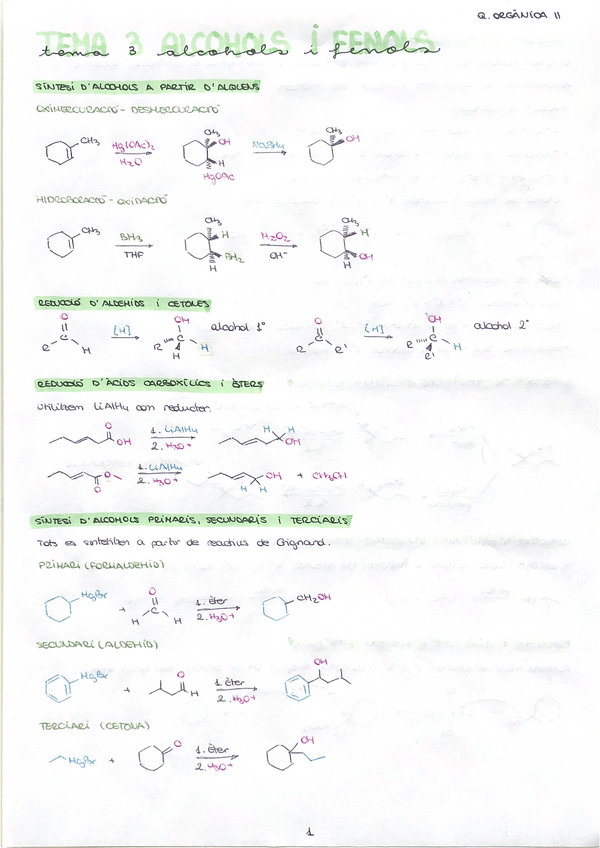 Q. ORGÀNICA II
TEMA 3 ALCOHOLS I FENOLS
tema 3 alcohols i fenols
SÍNTESI D'ALCOHOLS A PARTIR D'ALQUENS
OXIMERCURACIÓ - DESMERCURACIÓ
CH3 Hg(OAc)2 H2O CH3 OH H HgOAc NaBH4 CH3 OH
HIDROBORACIÓ - OXIDACIÓ
CH3 BH3 THF CH3 H BH2 H H2O2 OH- CH3 H OH H
REDUCCIÓ D'ALDEHIDS I CETONES
O C R H [H] OH R C H H alcohol 1º O C R R' [H] OH R C H R' alcohol 2º
REDUCCIÓ D'ÀCIDS CARBOXÍLICS I ÈSTERS
Utilitzem LiAlH4 com reductor.
O OH 1. LiAlH4 2. H3O+ H H OH
O O 1. LiAlH4 2. H3O+ OH H H + CH3OH
SÍNTESI D'ALCOHOLS PRIMARIS, SECUNDARIS I TERCIARIS
Tots es sintetitzen a partir de reactius de Grignard.
PRIMARI (FORMALDEHID)
MgBr + O C H H 1. èter 2. H3O+ CH2OH
SECUNDARI (ALDEHID)
MgBr + O H 1. èter 2. H3O+ OH
TERCIARI (CETONA)
MgBr + O 1. èter 2. H3O+ OH
1